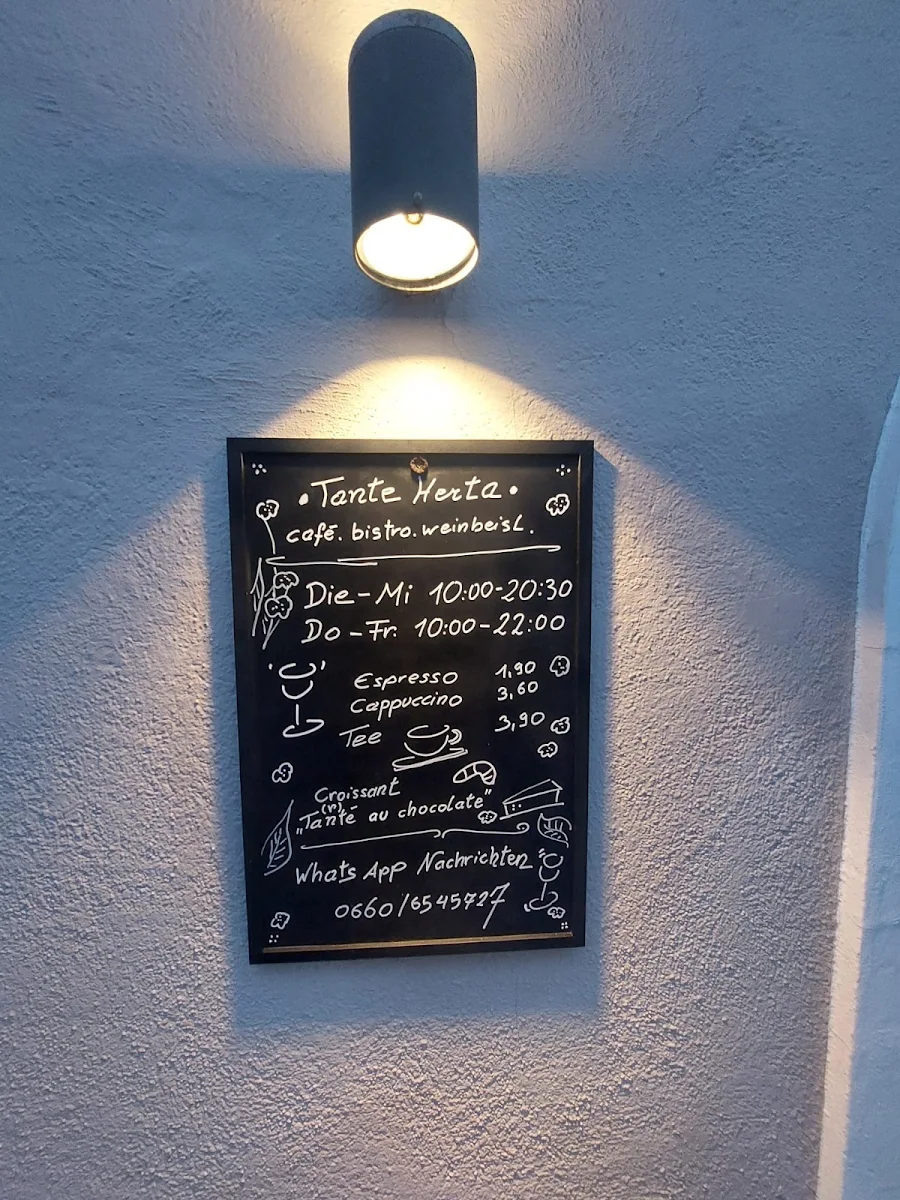 • Tante Herta •
café. bistro. weinbeisl.
Die - Mi 10:00-20:30
Do - Fr. 10:00-22:00
Espresso 1,90
Cappuccino 3,60
Tee 3,90
Croissant
(n)
„Tanté au chocolate"
Whats App Nachrichten
0660/6545727